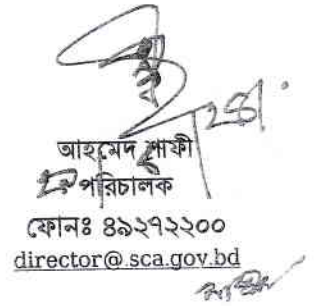 আহমেদ শাফী
পরিচালক
ফোনঃ ৪৯২৭২২০০
director@sca.gov.bd